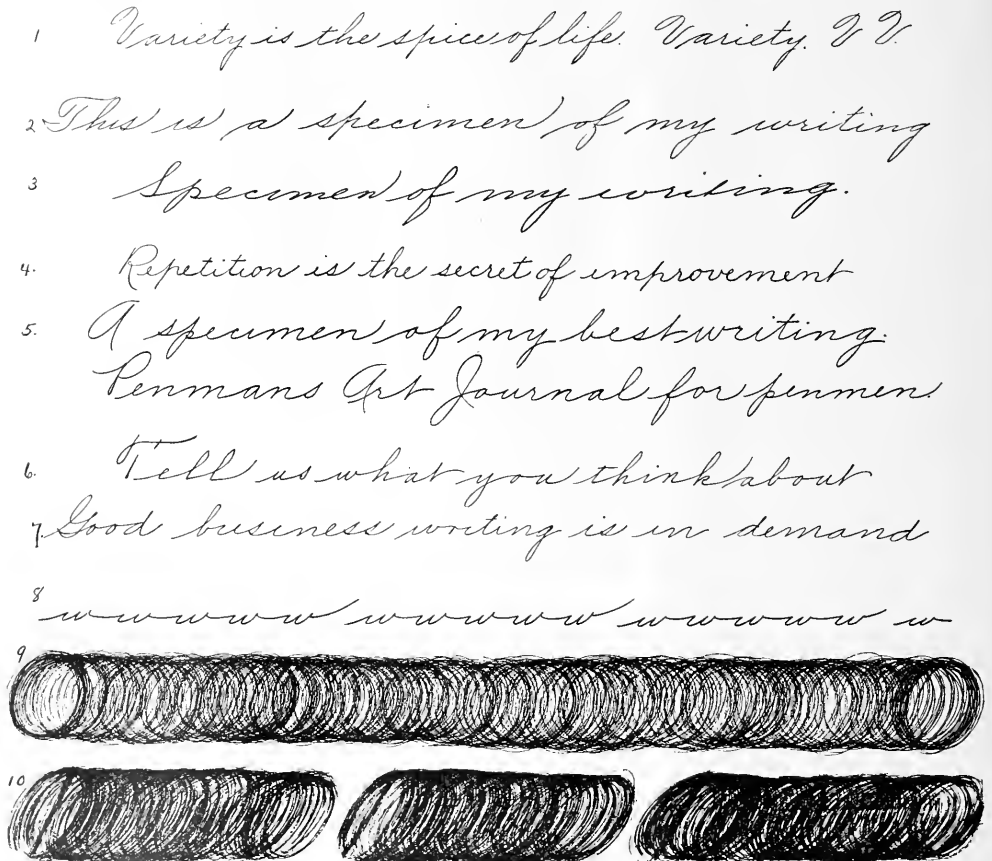 1 Variety is the spice of life. Variety. V V.
2 This is a specimen of my writing
3 Specimen of my writing.
4. Repetition is the secret of improvement
5. A specimen of my best writing.
Penmans Art Journal for penmen.
6. Tell us what you think about
7. Good business writing is in demand
8 w w w w w w w w w w w w w w w w
9
10